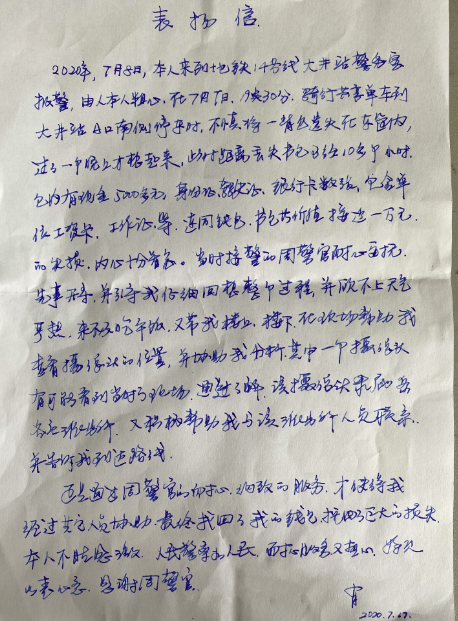 表扬信
2020年,7月8日,本人来到地铁14号线大井站警务室
报警,由本人粗心,在7月7日,19点30分,骑行共享单车到
大井站A口南侧停车时,不慎将一背包丢失在车筐内,
过了一个晚上才想起来,此时距离丢失书包已经10多个小时.
包内有现金5000多元,身份证,银行卡数张,包含单
位工资卡、工作证等.连同钱包、书包共价值接近一万元.
的失损,内心十分着急。当时接警的周警官耐心安抚.
失事,并引导我仔细回想整个过程,并顾不上天气
炎热,来不及吃午饭,又带我楼上,楼下,在现场帮助我
查看摄像头的位置,并协助我分析其中一个摄像头
有可能看到当时现场.通过了解,该摄像头隶属
派出所,又积极帮助我与该派出所人员联系.
并告诉我到达路线.
正是通过周警官的耐心,细致的服务,才使得我
经过其它人员协助,最终找回了我的钱包,挽回巨大的损失.
本人不胜感激,人民警察为人民,而热心服务又担心,特此
以表心意,感谢周警官.
2020.7.17.